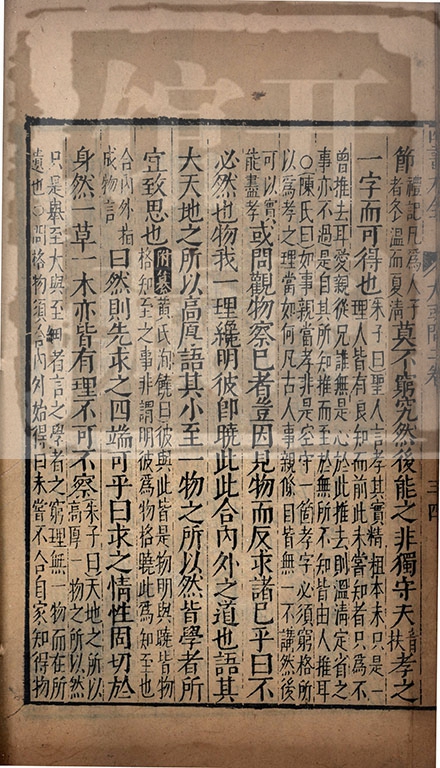 節
禮記凡為人子
者冬溫而夏凊
莫不窮究然後能之非獨守夫
音
扶
孝之
一字而可得也
朱子曰聖人言孝其實精粗本末只是一
理人皆有良知而前此未嘗知者只為不
曾推去耳愛親從兄誰無是心於此推去則溫凊定省之
事亦不過是自其所知推而至於無所不知皆由人推耳
○陳氏曰如事親當孝非是空守一箇孝字必須窮格所
以爲孝之理當如何凡古人事親條目皆無一不講然後
可以實
能盡孝
或問觀物察己者豈因見物而反求諸己乎曰不
必然也物我一理纔明彼卽曉此此合內外之道也語其
大天地之所以高厚語其小至一物之所以然皆學者所
宜致思也
附纂
黄氏洵饒曰彼與此皆是物明與曉皆物
格知至之事非謂明彼爲物格曉此爲知至也
合內外指
成物言
曰然則先求之四端可乎曰求之情性固切於
身然一草一木亦皆有理不可不察
朱子曰天地之所以
高厚一物之所以然
只是舉至大與至細者言之學者之窮理無一物而在所
遺也○問格物須合內外始得曰未嘗不合自家知得物